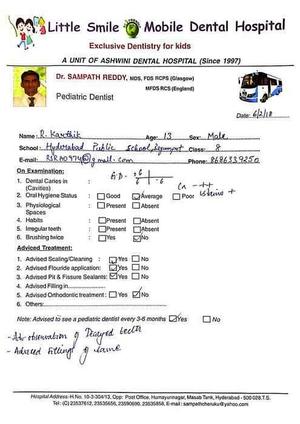 Little Smile Mobile Dental Hospital
Exclusive Dentistry for kids
A UNIT OF ASHWINI DENTAL HOSPITAL (Since 1997)
Dr. SAMPATH REDDY, MDS, FDS RCPS (Glasgow)
MFDS RCS (England)
Pediatric Dentist
Date: 6/2/18
Name: R. Karthik Age: 13 Sex: Male
School: Hyderabad Public School, Class: 8
E-mail: @gmail.com Phone: 8686339250
On Examination:
1. Dental Caries in (Cavities)
2. Oral Hygiene Status : Good Average Poor
3. Physiological Spaces : Present Absent
4. Habits : Present Absent
5. Irregular teeth : Present Absent
6. Brushing twice : Yes No
Adviced Treatment:
1. Advised Scaling/Cleaning : Yes No
2. Advised Flouride application : Yes No
3. Advised Pit & Fissure Sealants : Yes No
4. Advised Filling in
5. Advised Orthodontic treatment : Yes No
6. Others:
Note: Advised to see a pediatric dentist every 3-6 months Yes No
- observation of Decayed teeth
- Advised fillings of same
Hospital Address: H.No. 10-3-304/13, Opp: Post Office, Humayunnagar, Masab Tank, Hyderabad - 500 028.T.S.
Tel: (C) 23537612, 23535656, 23590690, 23535858. E-mail: sampathcheruku@yahoo.com